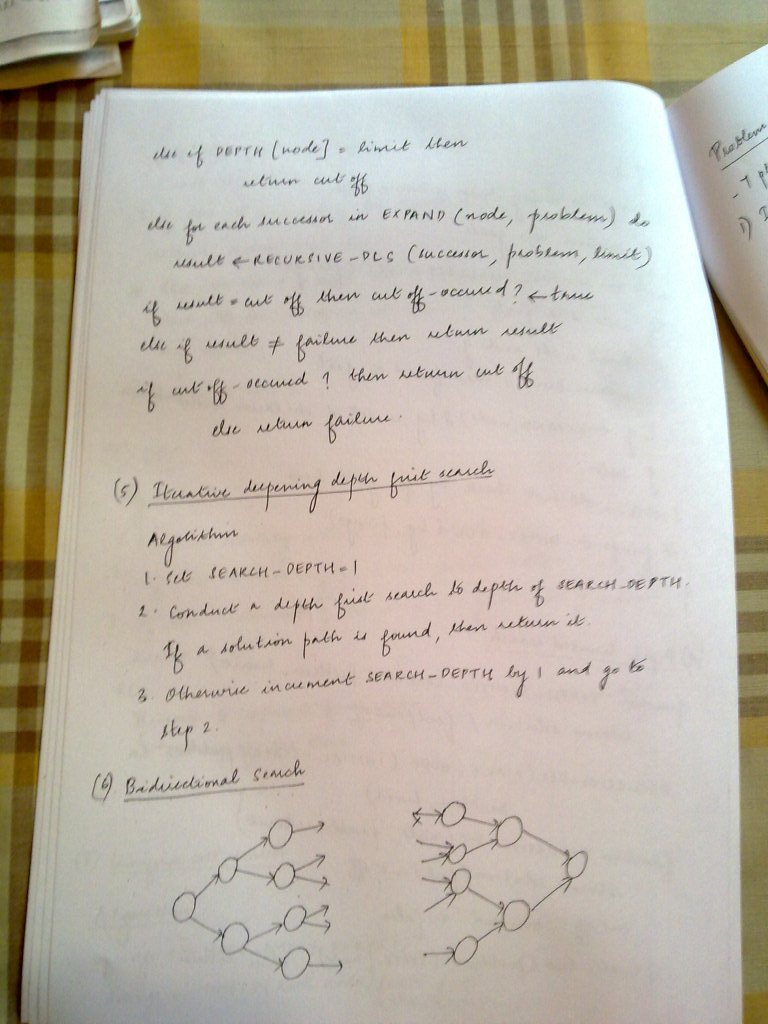 else if DEPTH [node] = limit then
return cut off
else for each successor in EXPAND (node, problem) do
result ← RECURSIVE-DLS (successor, problem, limit)
if result = cut off then cut off-occured? ← true
else if result ≠ failure then return result
if cut off-occured ? then return cut off
else return failure.
(5) Iterative deepening depth first search
Algorithm
1. Set SEARCH-DEPTH=1
2. Conduct a depth first search to depth of SEARCH_DEPTH.
If a solution path is found, then return it.
3. Otherwise increment SEARCH_DEPTH by 1 and go to
step 2.
(6) Bidirectional search
Problem
1)